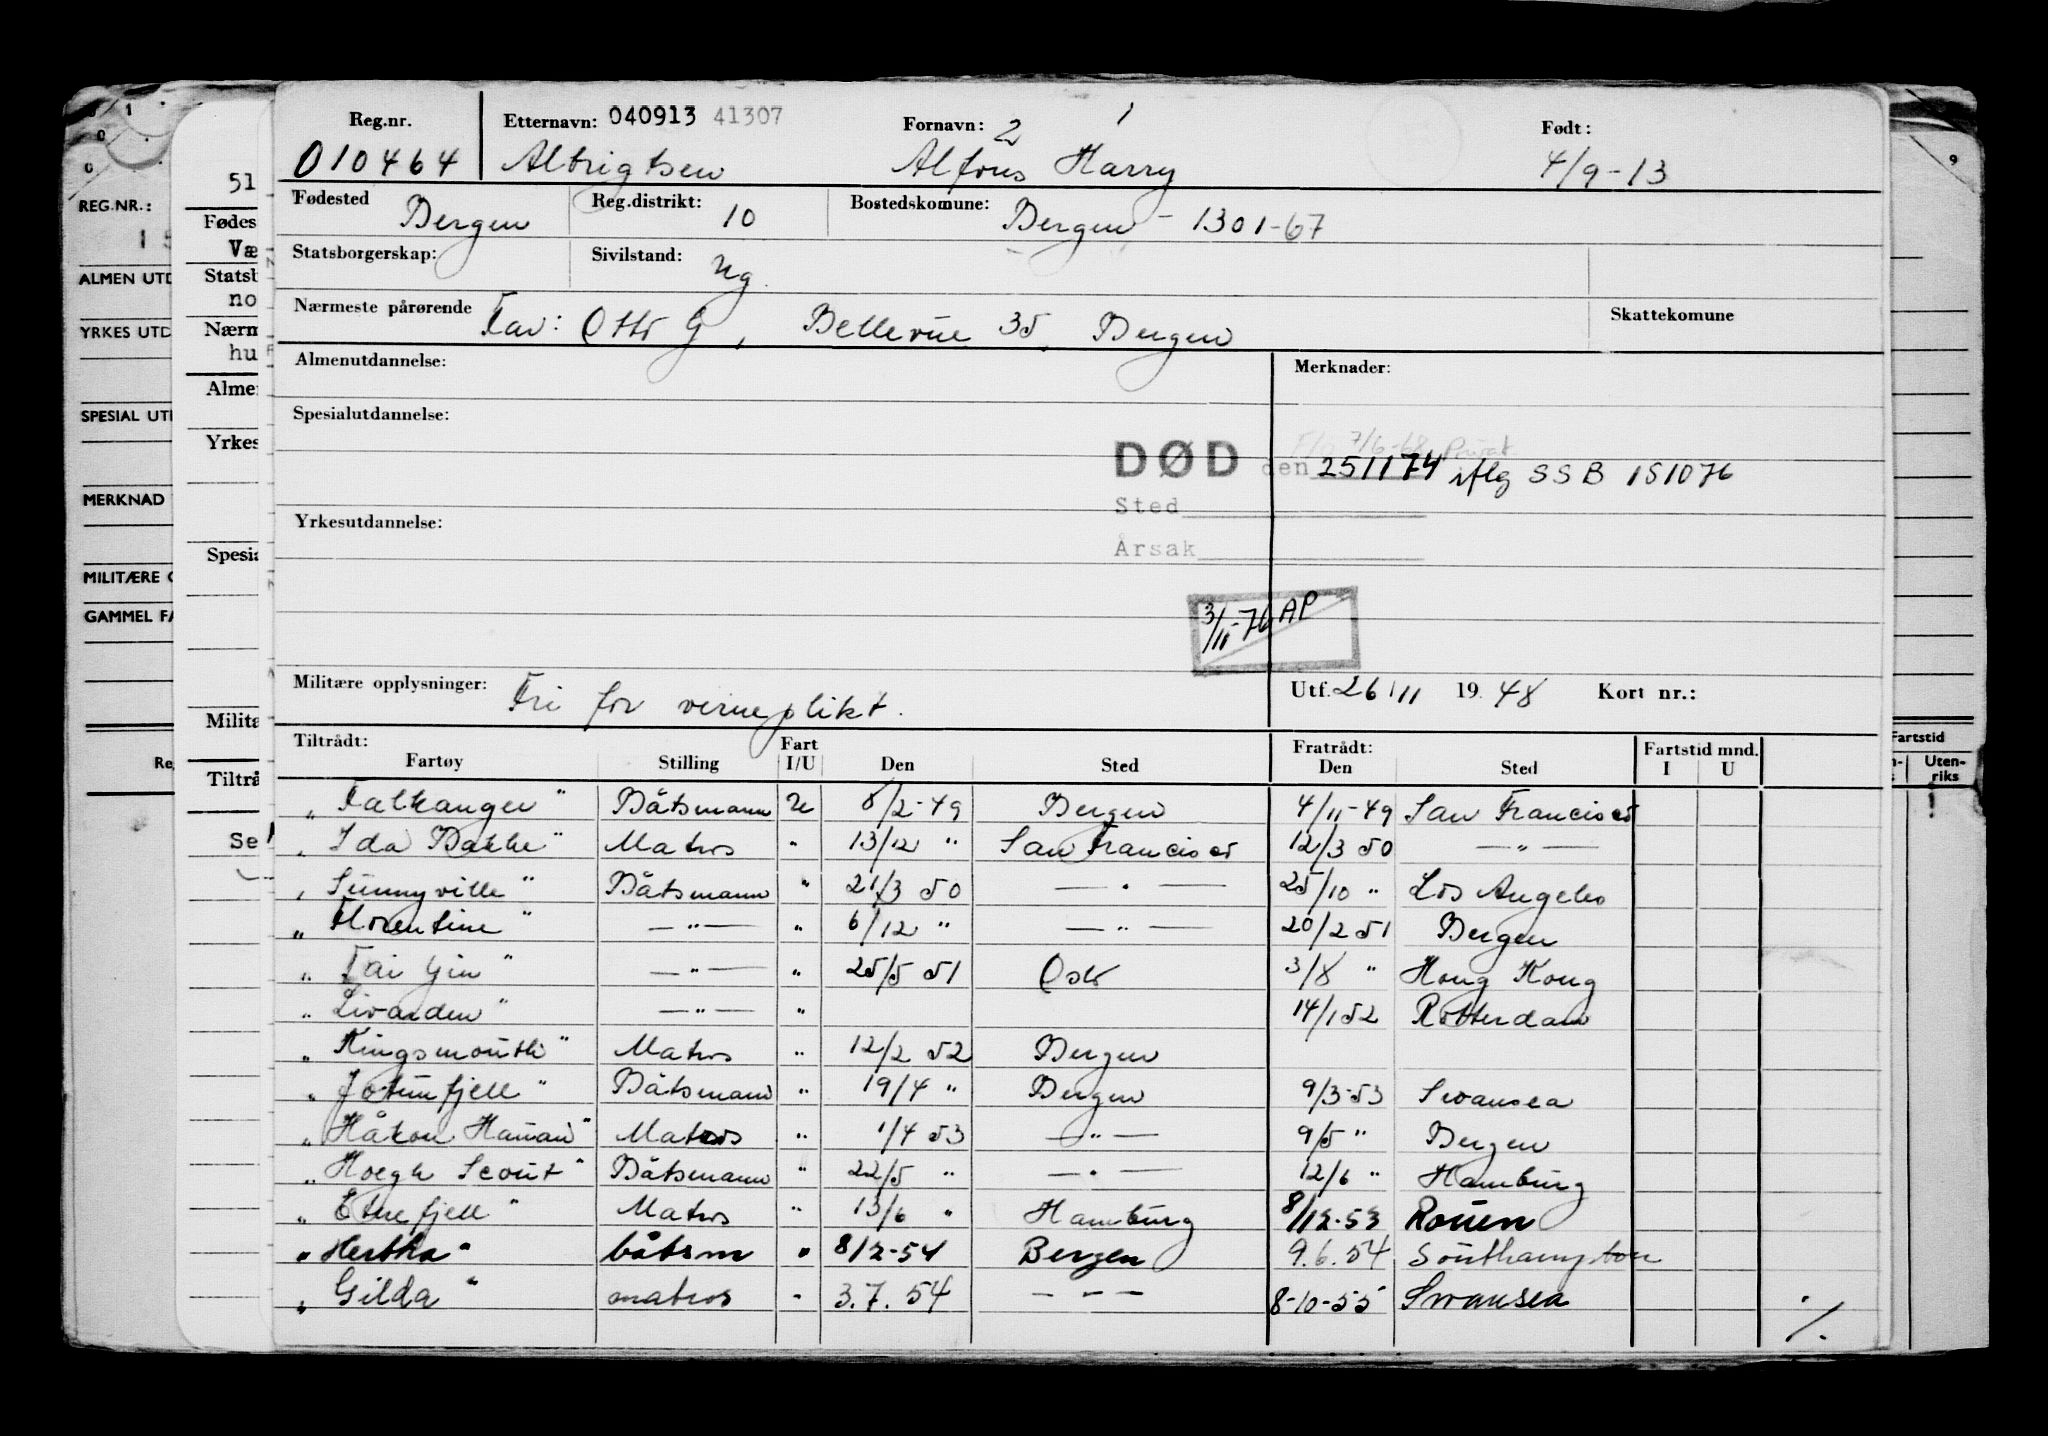 Reg.nr. Etternavn: 040913 41307 Fornavn: 2 1 Født:
010464 Albrigtsen Alfons Harry 4/9-13
Fødested Bergen Reg.distrikt: 10 Bostedskomune: Bergen - 1301-67
Statsborgerskap: Sivilstand: Ug.
Nærmeste pårørende Far: Otto G, Bellevue 35, Bergen Skattekomune
Almenutdannelse: Merknader:
Spesialutdannelse:
7/6-68 Privat
DØD den 251174 iflg SSB 151076
Sted
Yrkesutdannelse:
Årsak
3/11-76 AP
Militære opplysninger: Fri for verneplikt. Utf. 26/11 19 48 Kort nr.:
Tiltrådt: Fart Fratrådt: Fartstid mnd.
Fartøy Stilling I/U Den Sted Den Sted I U
„ Falkanger " Båtsmann U 8/2-49 Bergen 4/11-49 San Francisco
„ Ida Bakke " Matros " 13/12 " San Francisco 12/3 50 — " —
„ Sunnyville " Båtsmann " 21/3 50 — " — 25/10 " Los Angeles
„ Florentine " — " — " 6/12 " — " — 20/2 51 Bergen
„ Tai Yin " — " — " 25/5 51 Oslo 3/8 " Hong Kong
„ Livarden " — " — " 14/1 52 Rotterdam
„ Kingsmouth " Matros " 12/2 52 Bergen
„ Jotunfjell " Båtsmann " 19/4 " Bergen 9/3-53 Swansea
„ Håkon Hauan " Matros " 1/4 53 — " — 9/5 " Bergen
„ Hoegh Scout " Båtsmann " 22/5 " — " — 12/6 " Hamburg
„ Etnefjell " Matros " 13/6 " Hamburg 8/12-53 Rouen
„ Hertha " båtsm " 8/2-54 Bergen 9.6.54 Southampton
„ Gilda " matros - 3.7.54 — — — 8-10-55 Swansea
./.
REG.NR.:
ALMEN UTD
YRKES UTD
SPESIAL UT
MERKNAD
MILITÆRE
GAMMEL FA
51
Fødes
Væ
Statsb
no
Nærm
hu
Alme
Yrkes
Spesia
Milita
Tiltrå
Se
9
Fartstid
Uten-
riks